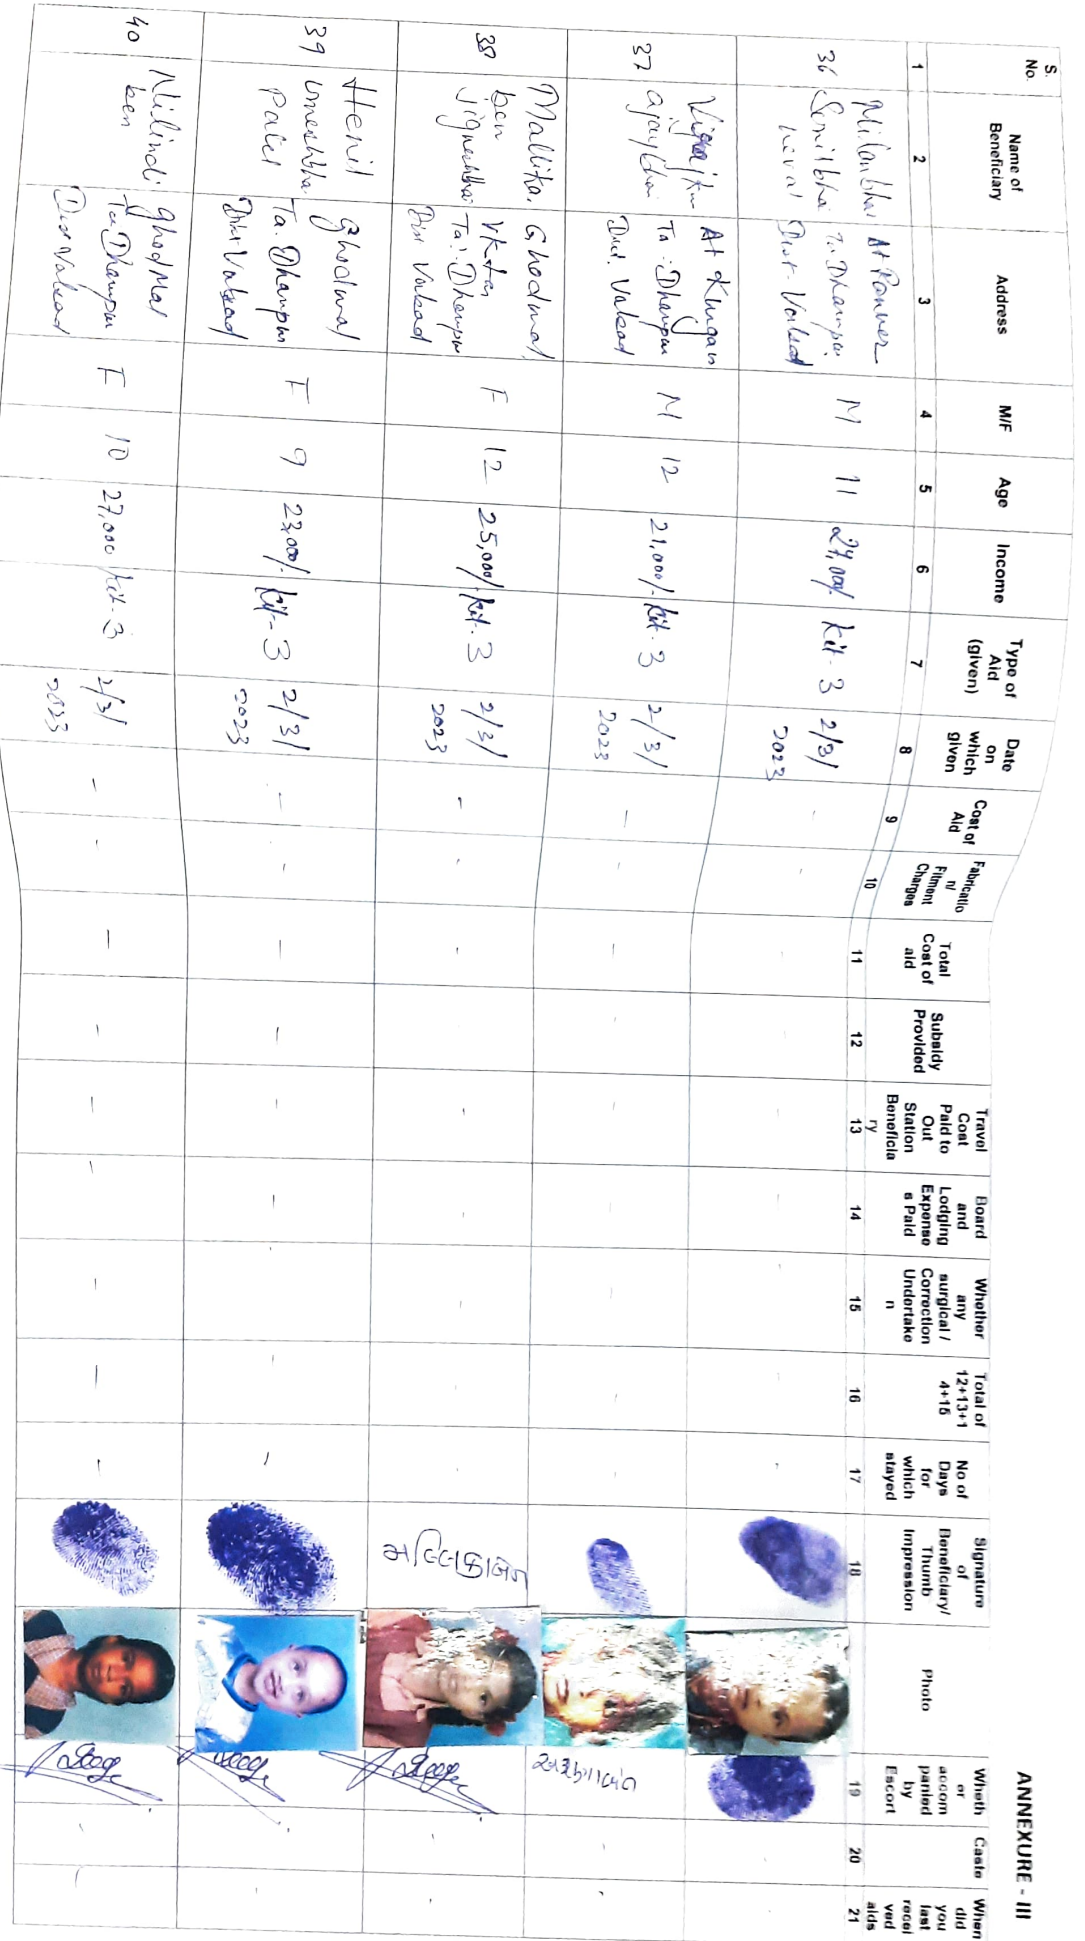 ANNEXURE - III
S. No.
Name of Beneficiary
Address
M/F
Age
Income
Type of Aid (given)
Date on which given
Cost of Aid
Fabricatio n/ Fitment Charges
Total Cost of aid
Subsidy Provided
Travel Cost Paid to Out Station Beneficia ry
Board and Lodging Expense s Paid
Whether any surgical / Correction Undertake n
Total of 12+13+1 4+15
No of Days for which stayed
Signature of Beneficiary/ Thumb Impression
Photo
Wheth er accom panied by Escort
Caste
When did you last recei ved aids
1 2 3 4 5 6 7 8 9 10 11 12 13 14 15 16 17 18 19 20 21
36 Milanbhai At Ta. Dharampur Dist Valsad M 11 Kit - 3 2/3/ 2023 - - - - - - - - -
37 ajaybhai At Ta. Dharampur Dist. Valsad M 12 21,000/- Kit - 3 2/3/ 2023 - - - - - - - - -
38 Mallika ben jigneshbhai Ghodmal, Ta. Dharampur Dist Valsad F 12 25,000/- Kit - 3 2/3/ 2023 - - - - - - - - - - -
39 Henil Umeshbhai Patel Ghodmal Ta. Dharampur Dist Valsad F 9 23,000/- Kit - 3 2/3/ 2023 - - - - - - - - - - -
40 ben Ghodmal Ta. Dharampur Dist Valsad F 10 27,000 Kit - 3 2/3/ 2023 - - - - - - - - - - -